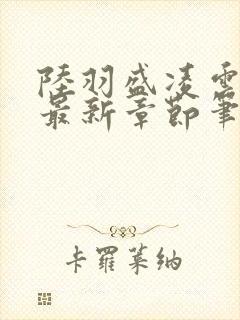 陸羽盛凌雲
最新章節筆
卡羅萊納